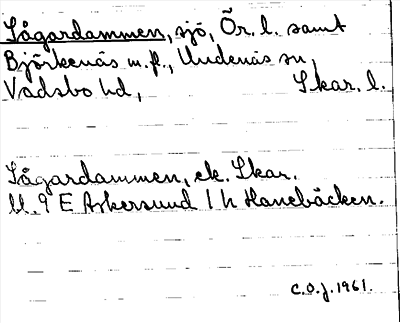 Sågardammen, sjö, Ör. l. samt
Björkenäs m. fl., Undenäs sn,
Vadsbo hd, Skar. l.
Sågardammen, ek. Skar.
bl. 9 E Askersund 1 h Hanebäcken.
C.O.J. 1961.